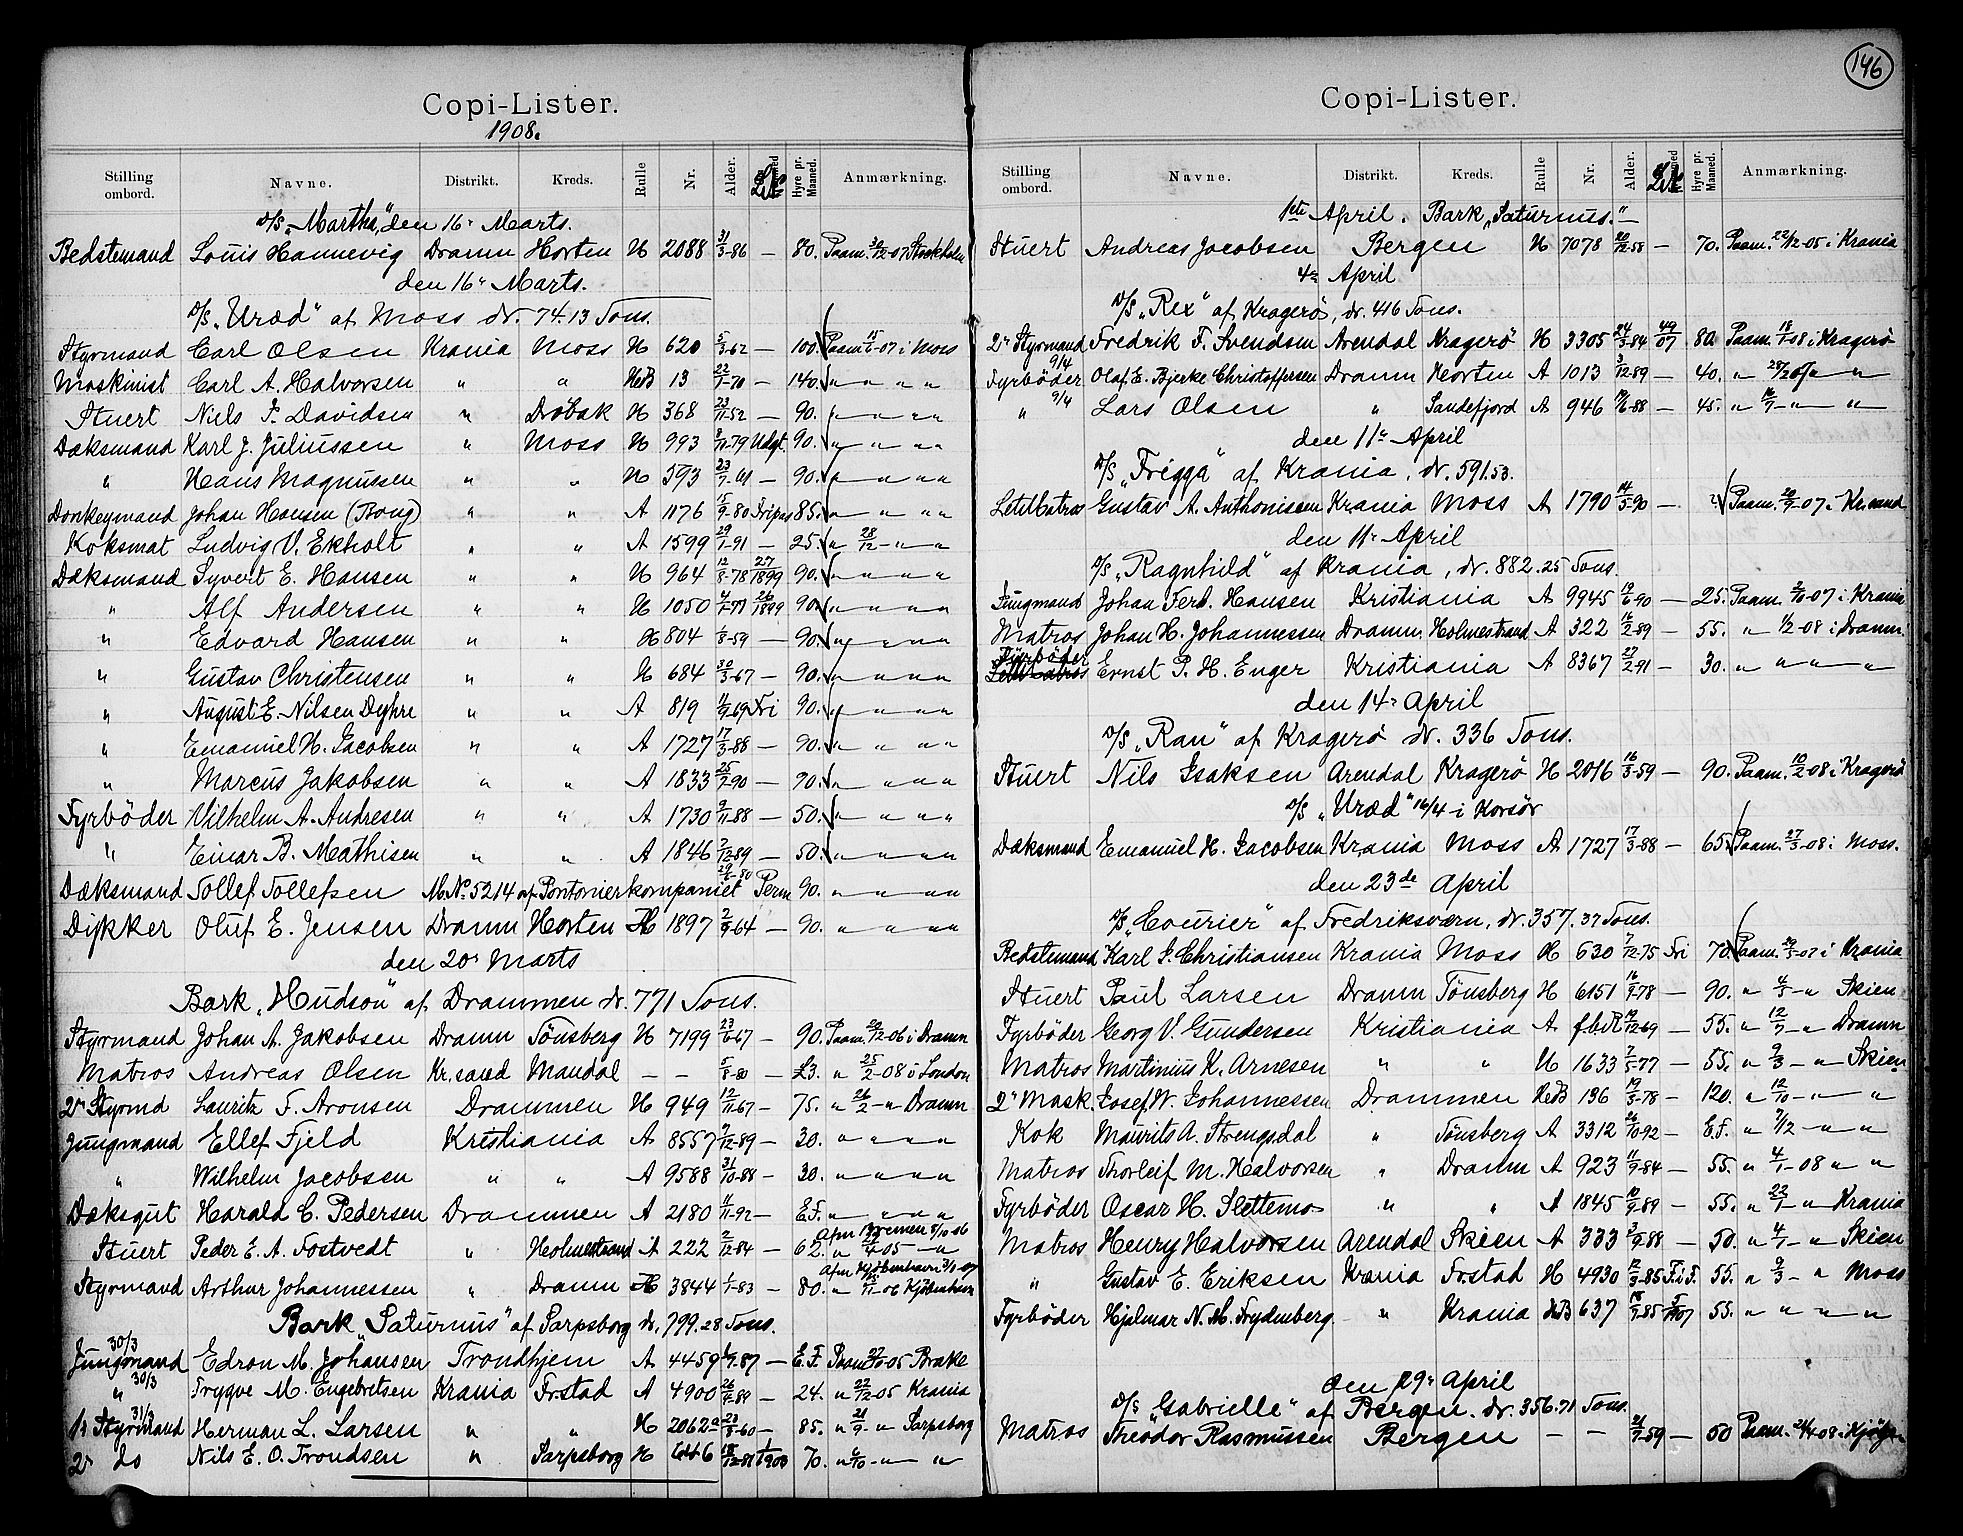 Copi-Lister.
1908.
Stilling ombord. Navne. Distrikt. Kreds. Rulle Nr. Alder. Hyre pr. Maaned. Anmærkning.
D/S „Martha" den 16' Marts.
Bedstemand Louis Hannevig Dramn Horten H 2088 31/3-86 — 80. Paam. 30/12-07 Stockholm
den 16' Marts.
D/S „Uræd" af Moss dr. 74.13 Tons.
Styrmand Carl Olsen Krania Moss H 620 5/3-62 — 100. Paam 15/6-07 i Moss
Maskinist Carl A. Halvorsen " " HeB 13 22/7-70 — 140. " " " "
Stuert Nils F. Davidsen " Dröbak H 368 23/11-52 — 90. " " " "
Dæksmand Karl J. Juliussen " Moss H 993 8/11-79 Udgt. 90. " " "
" Hans Magnussen " " H 593 23/7-61 — 90. " " "
Donkeymand Johan Hansen (Bong) " " A 1176 15/9-80 Fripas 85. " " "
Koksmat Ludvig V. Ekholt " " A 1599 29/1-91 — 25. " 28/12 - " "
Dæksmand Syvert E. Hansen " " H 964 12/8-78 27/1899 90. " " " "
" Alf Andersen " " H 1050 4/1-77 26/1899 90. " " " "
" Edvard Hansen " " H 804 1/3-59 — 90. " " " "
" Gustav Christensen " " H 684 30/3-67 — 90. " " " "
" August E. Nilsen Dyhre " " A 819 11/9-69 Fri 90. " " " "
" Emanuel H. Jacobsen " " A 1727 17/3-88 — 90. " " " "
" Marcus Jakobsen " " A 1833 25/7-90 — 70. " " " "
Fyrböder Vilhelm A. Andresen " " A 1730 9/11-88 — 50. " " " "
" Einar B. Mathisen " " A 1846 2/12-89 — 50. " " " "
Dæksmand Tollef Tollefsen M. No 5214 af Pontonierkompaniet 29/6-80 Perm 90. " " " "
Dykker Oluf E. Jensen Dramn Horten H 1897 2/9-64 — 90. " " " "
den 20' Marts
Bark „Hudson" af Drammen dr. 771 Tons.
Styrmand Johan A. Jakobsen Dramn Tönsberg H 7199 23/6-67 — 90. Paam. 20/12-06 i Dramn
Matros Andreas Olsen Kr.sand Mandal — — 5/8-80 — £3. " 25/2-08 i London
2' Styrmd Lauritz F. Aronsen Drammen H 949 12/11-67 — 75. " 26/2 - " Dramn
Jungmand Ellef Fjeld Kristiania A 8557 7/12-89 — 30. " " " "
" Wilhelm Jacobsen " " A 9588 31/10-88 — 30. " " " "
Dæksgut Harald C. Pedersen Drammen A 2180 11/11-92 — E.F. " " " "
Stuert Peder E. A. Fostvedt " Holmestrand A 222 2/12-84 — 62. Afm Bremen 8/10 06 " /4-05 - "
Styrmand Arthur Johannessen " Dramn H 3844 1/1-83 — 80. Afm Kjöbenhavn 3/1-07 " /11-06 Kjöbenhavn
Bark „Saturnus" af Sarpsborg dr. 799.28 Tons.
30/3 Jungmand Edron M. Johansen Trondhjem A 4459 1/7-87 — E.F. Paam 27/10-05 Brake
" 30/3 Trygve M. Engebretsen Krania Frstad A 4900 26/4-89 — 24. " 22/12-05 Krania
31/3 1' Styrmand Herman L. Larsen " " H 2062a 23/8-60 — 85. " 21/9- " Sarpsborg
2' do Nils E. O. Trondsen " Sarpsborg H 6446 18/12-81 1/1903 70. " 6/10 - " "
146
Copi-Lister.
Stilling ombord. Navne. Distrikt. Kreds. Rulle Nr. Alder. Hyre pr. Maaned. Anmærkning.
1ste April. Bark „Saturnus."
Stuert Andreas Jacobsen Bergen H 7078 20/12-58 — 70. Paam. 22/12-05 i Krania
4de April
D/S „Rex" af Kragerö, dr. 416 Tons.
2' Styrmand Fredrik F. Svendsen Arendal Kragerö H 3305 24/3-84 49/07 80. Paam. 18/1-08 i Kragerö
9/4 Fyrböder Olaf E. Bjerke Christoffersen Dramn Horten A 1013 3/12-89 — 40. " 28/12 07 " "
" 9/4 Lars Olsen " Sandefjord A 946 14/6-88 — 45. " 16/7 - " "
den 11te April
D/S „Frigga" af Krania, dr. 591.53.
Letbtmatros Gustav A. Anthonisen Krania Moss A 1790 14/5-90 — Paam. 20/9-07 i Kr.sand
den 11' April
D/S „Ragnhild" af Krania, dr. 882.25 Tons.
Jungmand Johan Ferd. Hansen Kristiania A 9945 19/6-90 — 25. Paam. 2/10-07 i Krania
Matros Johan H. Johannessen Dramn. Holmestrand A 322 16/2-89 — 55. " 1/2-08 i Dramn.
Fyrböder Ernst P. H. Enger Kristiania A 8367 27/2-91 — 30. " " " "
den 14' April
D/S „Ran" af Kragerö dr. 336 Tons.
Stuert Nils Isaksen Arendal Kragerö H 2016 16/3-59 — 90. Paam. 10/2-08 i Kragerö
D/S „Uræd" 16/4 i Korsör
Dæksmand Emanuel H. Jacobsen Krania Moss A 1727 17/3-88 — 65. Paam. 27/3-08 i Moss.
den 23de April
D/S „Courier" af Fredriksværn, dr. 357.37 Tons.
Bedstemand Karl J. Christiansen Krania Moss H 630 7/12-75 Fri 70. Paam. 29/5-07 i Krania
Stuert Paul Larsen Dramn Tönsberg H 6151 16/9-78 — 90. " 4/5 - " Skien
Fyrböder Georg V. Gundersen Kristiania A fbiR 14/12-69 — 55. " 12/7 - " Dramn
Matros Martinius K. Arnesen " " H 1633 7/5-77 — 55. " 9/3 - " Skien
2' Mask. Josef W. Johannessen Drammen HeB 136 19/3-78 — 120. " 12/10 - " "
Kok Maurits A. Strengsdal " Tönsberg A 3312 26/10-92 — E.F. " 7/12 - " "
Matros Thorleif M. Halvorsen " Dramn A 923 11/9-84 — 55. " 4/1-08 " "
Fyrböder Oscar H. Slettemo " " A 1845 10/9-89 — 55. " 22/1 - " Krania
Matros Henry Halvorsen Arendal Skien A 333 3/9-88 — 50. " 4/1 - " Skien
" Gustav E. Eriksen Krania Frstad H 4930 12/3-85 F.i.F. 55. " 2/3 - " Moss
Fyrböder Hjalmar N. M. Frydenberg " Krania HeB 637 18/9-85 5/1907 55. " " " "
den 29' April
D/S „Gabrielle" af Bergen. dr. 356.71 Tons.
Matros Theodor Rasmussen Bergen — — 21/7-59 — 50 Paam. 24/4 08 i Kjöge